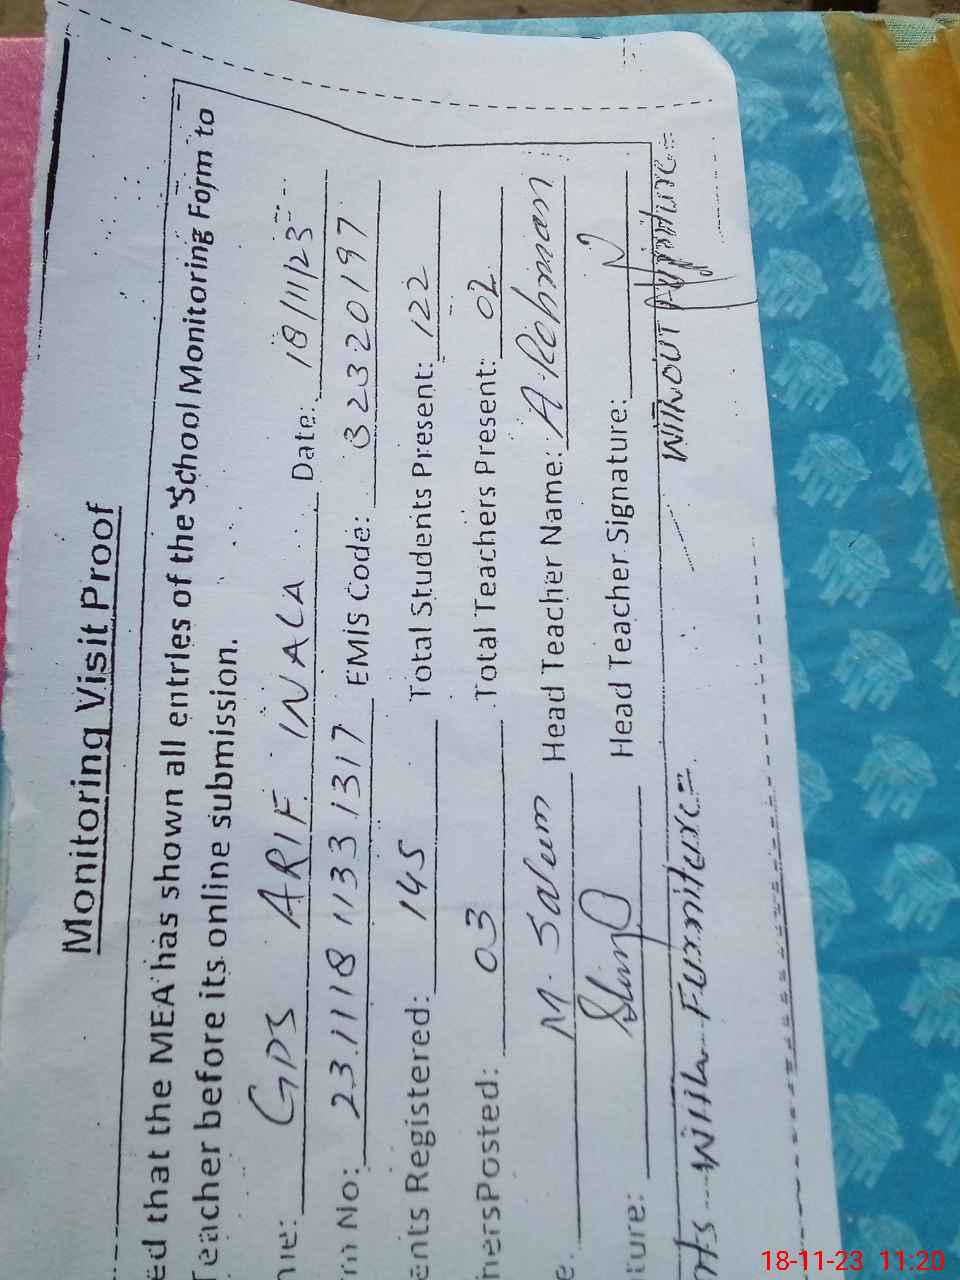 Monitoring Visit Proof
ed that the MEA has shown all entries of the School Monitoring Form to
Teacher before its online submission.
me: GPS ARIF INALA Date: 18/11/23
rm No: 231118 1133 1317 EMIS Code: 32320197
ents Registered: 145 Total Students Present: 122
hersPosted: 03 Total Teachers Present: 02
e: M. Salum Head Teacher Name: A. Rehman
ture: Head Teacher Signature:
nts With Furniture= Without
18-11-23 11:20